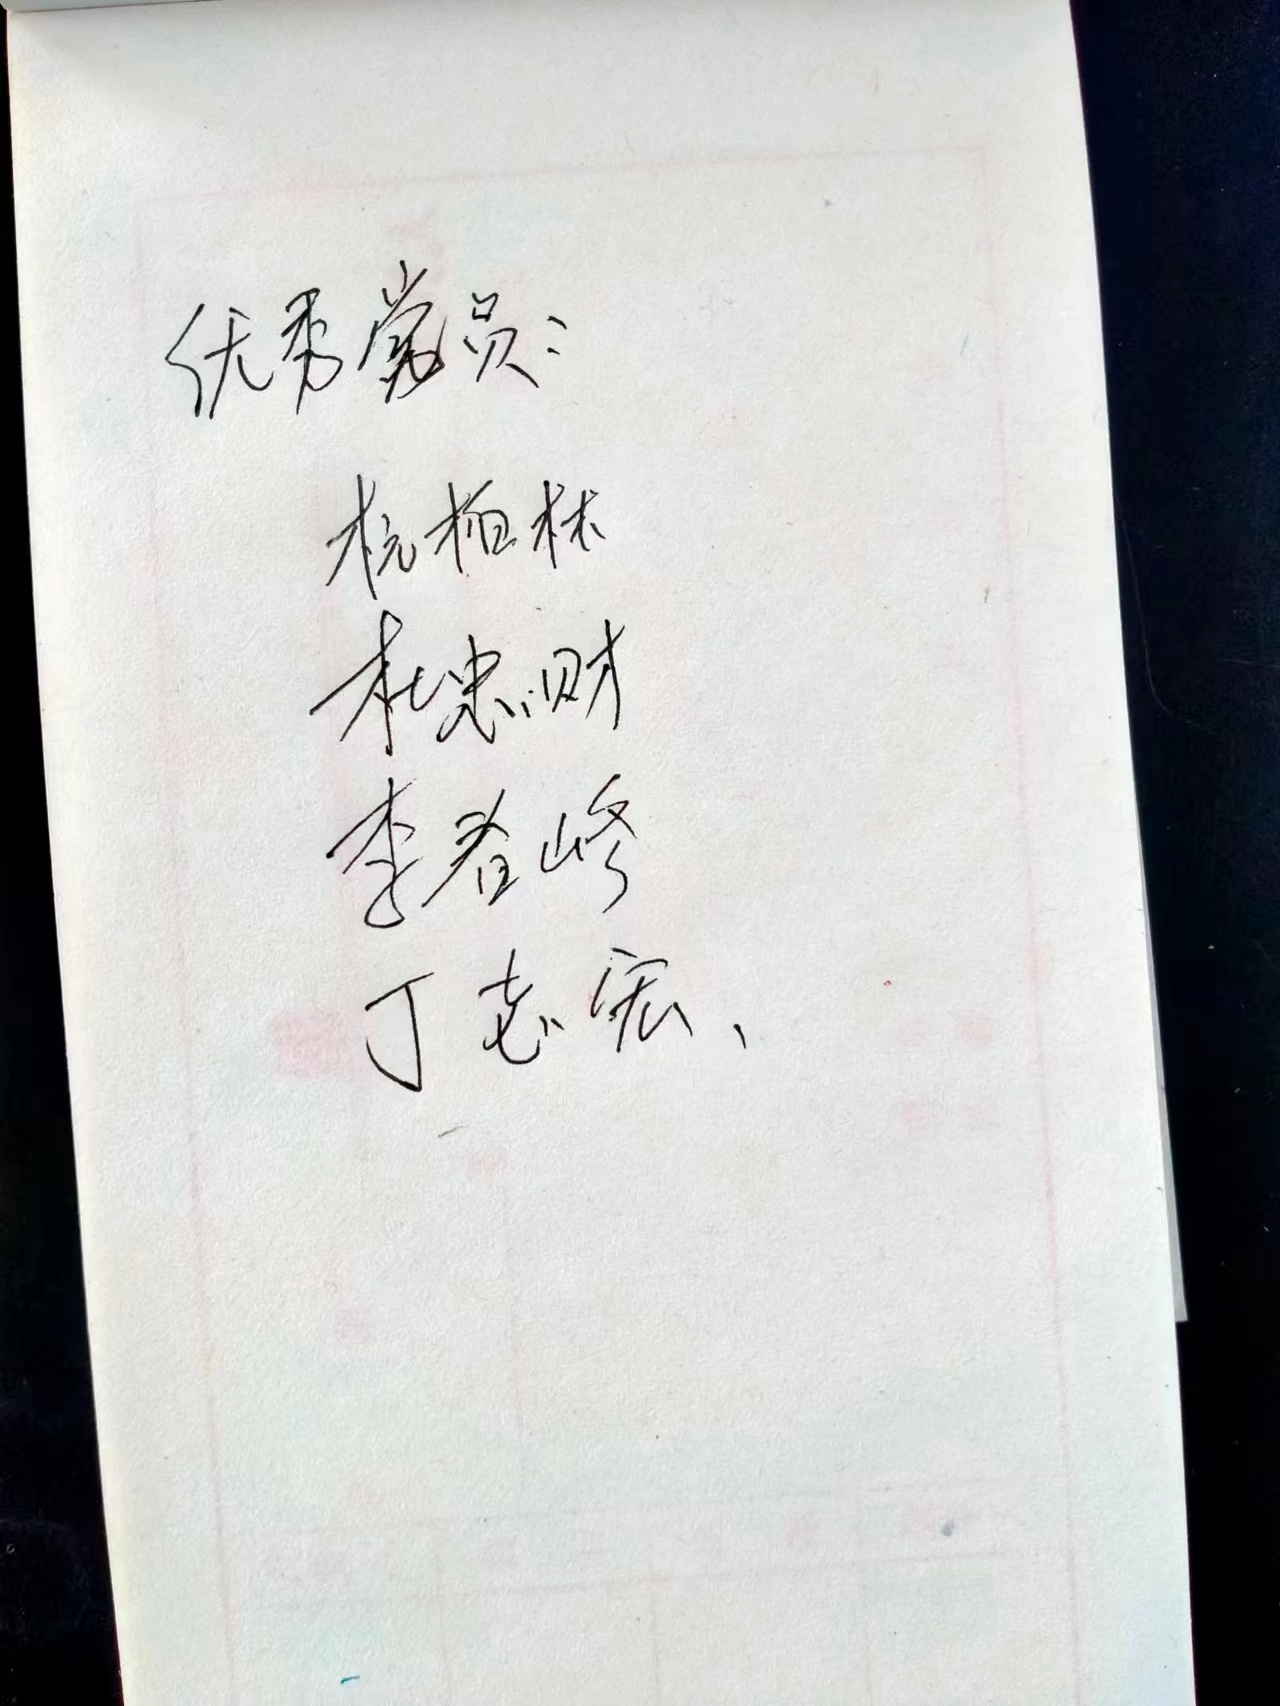 优秀党员：
杭柏林
杜忠财
李春峰
丁志宏、